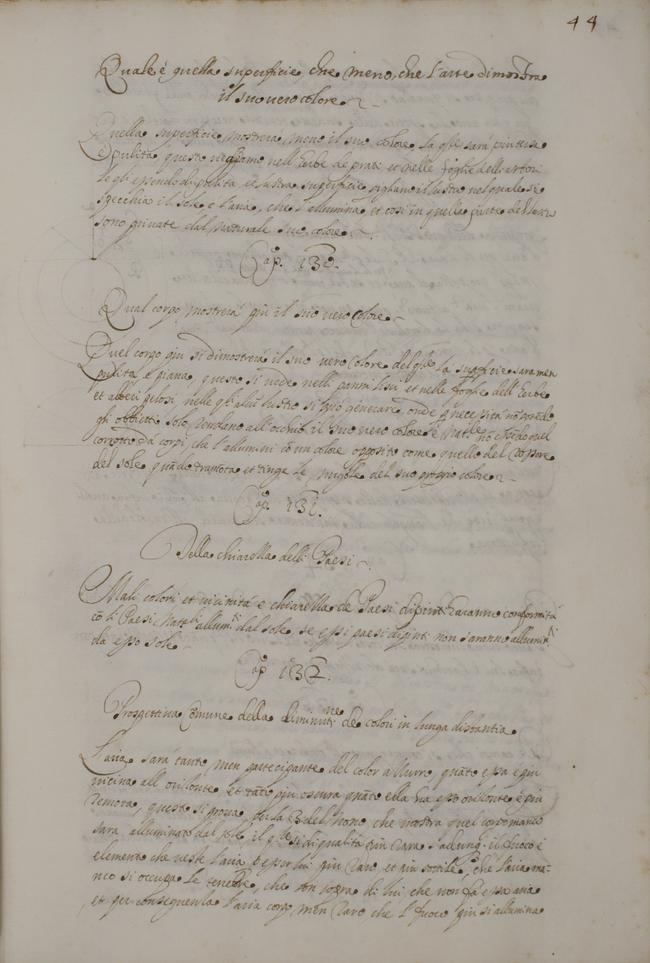 44
Quale è quella superficie, che meno, che l'arte dimostra
il suo vero colore
Quella superficie mostrera meno il suo colore la qle sará più tersa
e pulita, questo vegiamo nell'Erbe de prati et nelle foglie delli arbori
le qli essendo di pulita et lustra superficie pigliano il lustro nel quale se
specchia il sole e l'aria, che l'allumina et cosi in quella parte del lustro
sono private dal naturale suo colore
Cap. 130.
Qual corpo mostrerá più il suo vero Colore
Quel corpo più si dimostrerá il suo vero colore del qle la superficie sara men
pulita e piana, questo si vede nelli panni lini et nelle foglie dell'Erbe
et alberi pelosi nelle qli alcũ lustro si può generare, onde p necessita nõ potẽdo
gli obbietti solo rendano all'occhio il suo vero colore e nat.le nõ essẽdo quel
corrotto da corpi, che l'allumini cõ un colore opposito come quello del rossore
del sole quãdo tramõta et tinge le nugole del suo proprio colore
Cap. 131.
Della chiarezza delli Paesi
Mali colori et vicinitá e chiarezza de Paesi dipinti haranno conformitá
cõ li Paesi Natali allumti dal sole se essi paesi dipinti non saranno allumin.ti
da esso sole
Cap 132.
Prospettiva Comune della diminut.ne de colori in lunga distantia
L'aria sará tanto men partecipante del color azzurro, quãto essa è più
vicina all'orizonte, et tãto più oscura quãto ella ha esso orizonte è più
remota, questo si prova per la 3 del nono che mostra quel corpo manco
sara alluminato dal sole il qle sia di qualitá più rara Adunq. il fuoco
elemento che veste l'aria, p esser lui più raro, et più sottile, che l'aria mã-
nco si occupa le tenebre, che son sopra di lui che non fa essa aria
et per conseguenza l'aria corpo, men raro che l'fuoco più si allumina